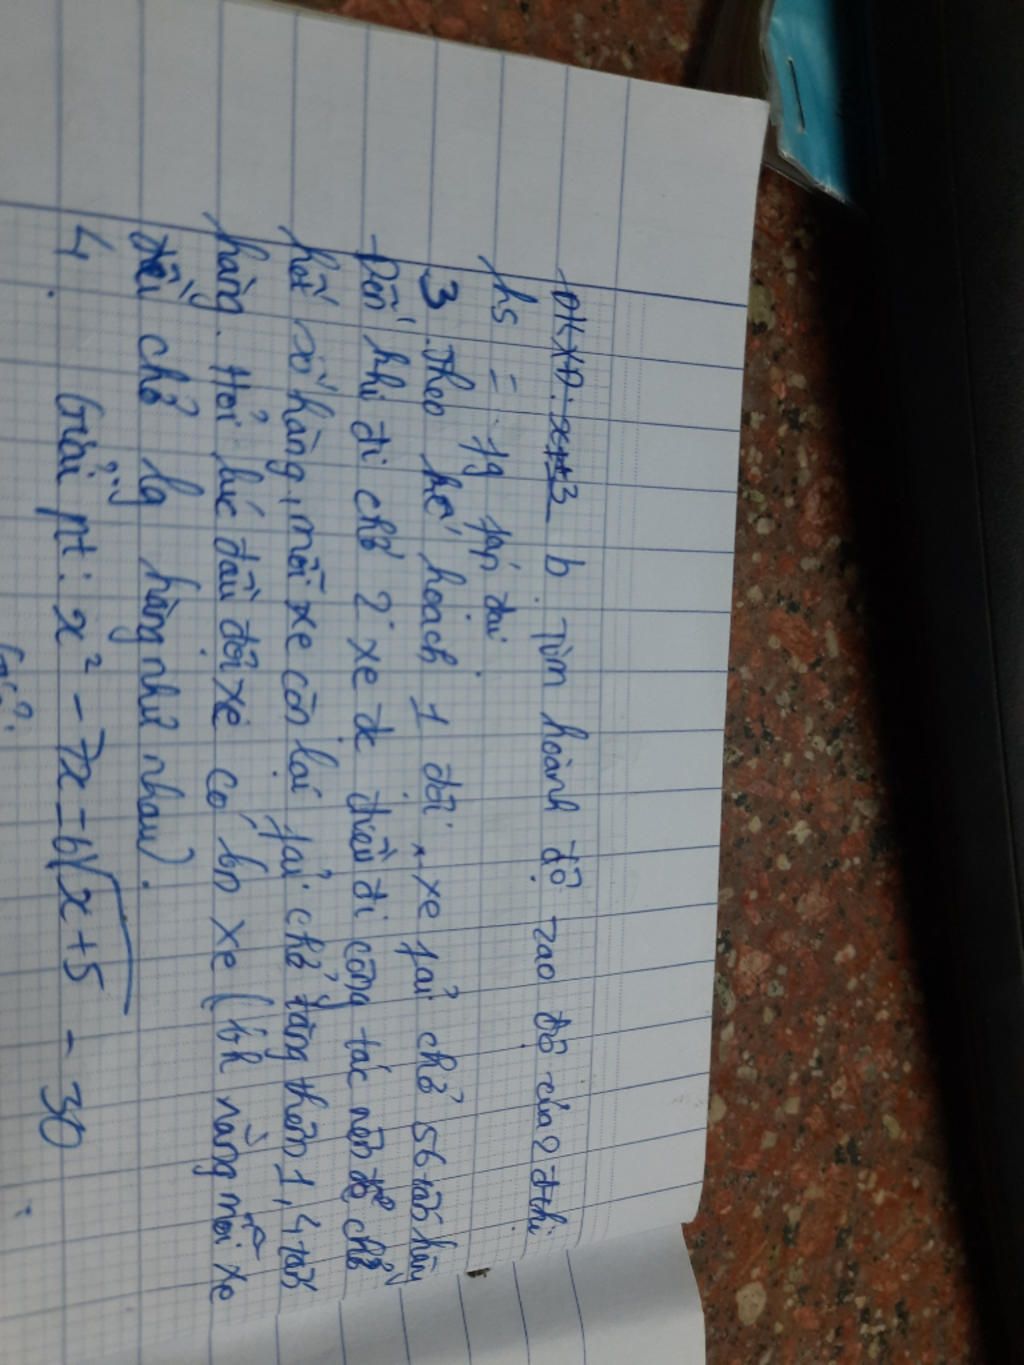 ĐKXĐ: b. Tìm hoành độ zao độ của 2 đthị
hs = fg fáp đại
3. Theo kế hoạch 1 đội xe fải chở 56 tấn hàng
Đến khi đi chở 2 xe đc điều đi công tác nên để chở
hết số hàng, mỗi xe còn lại fải chở tăng thêm 1,4 tấn
hàng. Hỏi lúc đầu đội xe có bn xe (bk rằng mỗi xe
đều chở lg hàng như nhau).
4. Giải pt: x² - 7x = 6√x+5 - 30